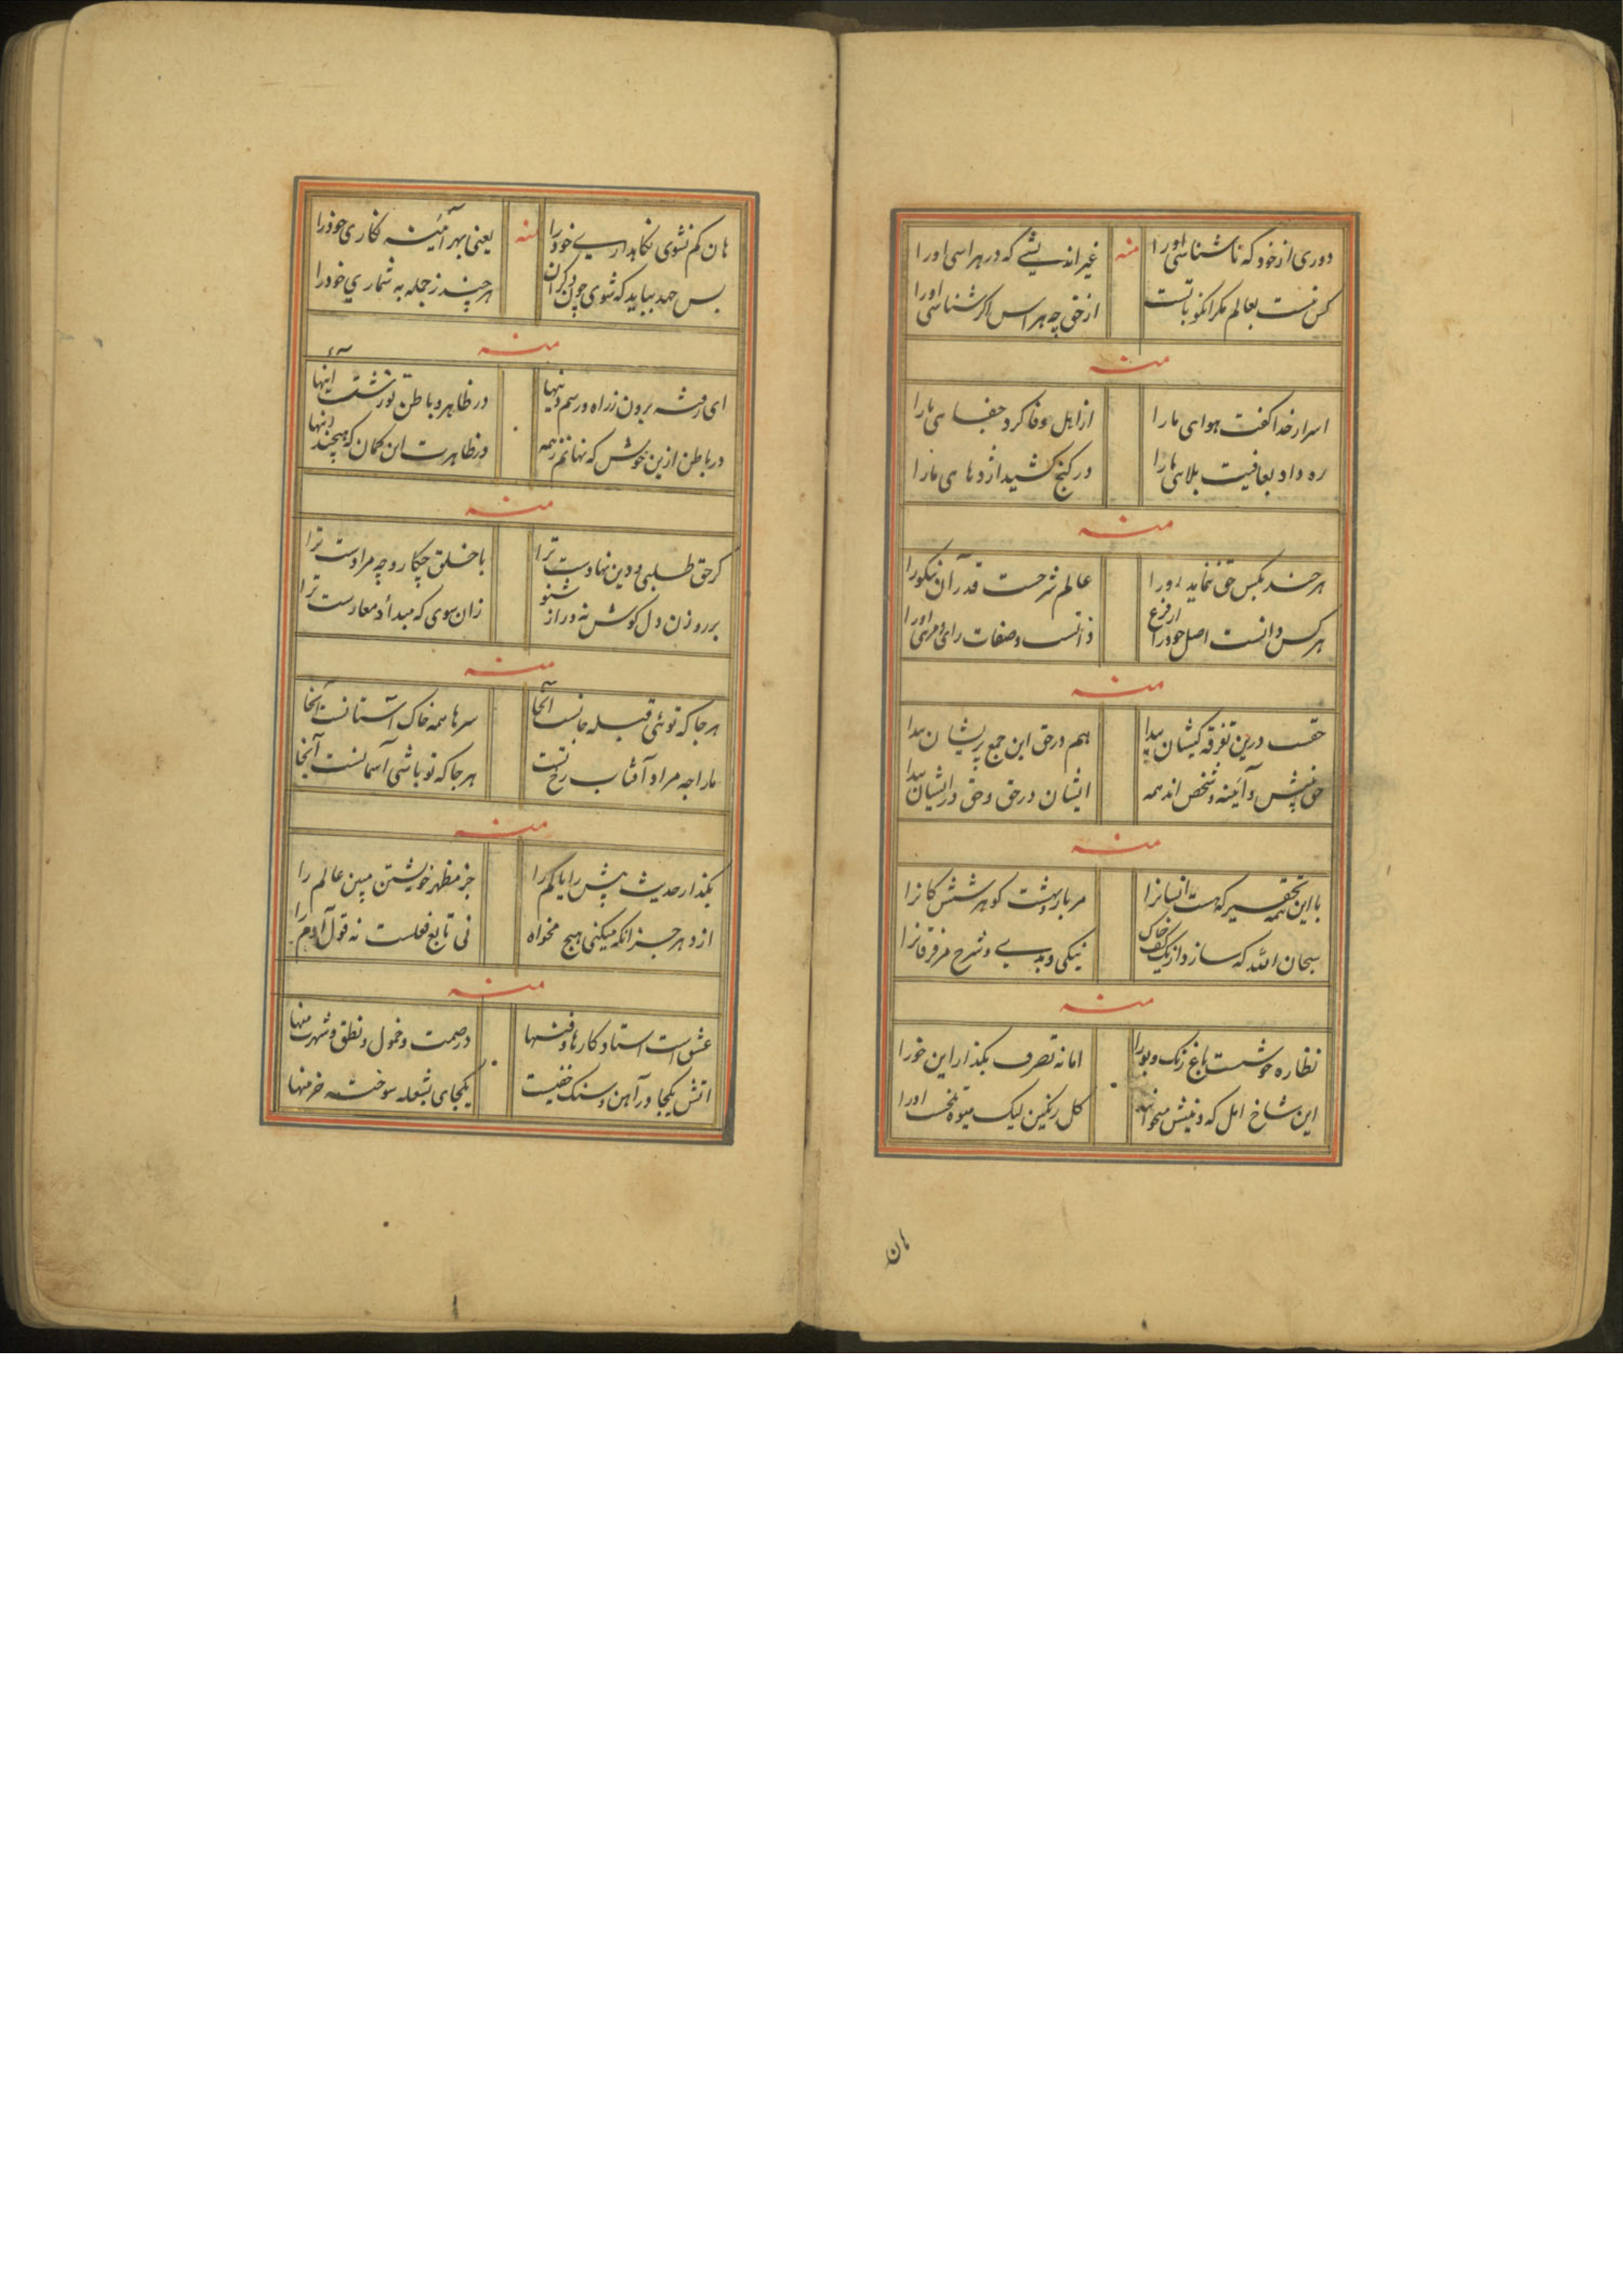 دوری از خود که ناشناسی او را منه غیر اندیشی که در هراسی او را
کس نیست بعالم مکر انکو با تست از حق چه هراس اکر شناسی او را
منه
اسرار خدا کفت هوای ما را از اهل وفا کرد جفای ما را
ره داد بعافیت بلای ما را در کنج کشید اژدهای ما را
منه
هر چند بکس حق ننماید رو را عالم شرحست قدر آن نیکو را
هر کس دانست اصل خود را از فرع ذاتست و صفات رای و مرای او را
منه
حقست درین تفرقه کیشان پیدا هم در حق این جمع پریشان پیدا
حق پیش و آئینه و شخص اند همه ایشان در حق و حق در ایشان پیدا
منه
با این همه تحقیر که هست انسانرا کوهر شش کانرا
سبحان الله که سازد از یک کف خاک نیکی و بدی و شرح مر فرقانرا
منه
نظاره خوشست باغ رنک و بو را اما نه تصرف بکذار این خو را
این شاخ امل که دنیش میخوانند کل رنکین لیک میوه تلخست او را
هان
هان کم نشوی نکاهداری خود را منه یعنی بهر آئینه نکاری خود را
بس جهد بباید که شوی چون دکران هر چند ز جمله به شماری خود را
منه
ای رفته برون ز راه و رسم دینها در ظاهر و باطن تو زشت آئینها
در باطن ازین خوش که نهانم ز همه در ظاهرت این کمان که هیچند اینها
منه
کر حق طلبی و دین نهادست ترا با خلق چکار و چه مرادست ترا
بر روزن دل کوش نه و راز شنو زان سوی که مبدأ و معادست ترا
منه
هر جا که توئی قبله جانست آنجا سرها همه خاک آستانست آنجا
ما را چه مراد آفتاب رخ تست هر جا که تو باشی آسمانست آنجا
منه
بکذار حدیث بیش را یا کم را جز مظهر خویشتن مبین عالم را
از دهر جز آنکه میکنی هیچ مخواه نی تابع فعلست نه قول آدم را
منه
عشق است استاد کارها و فنها در صمت و خمول و نطق و شهرت منها
آتش یکجا در آهن و سنک خفیست یکجای بشعله سوخته خرمنها